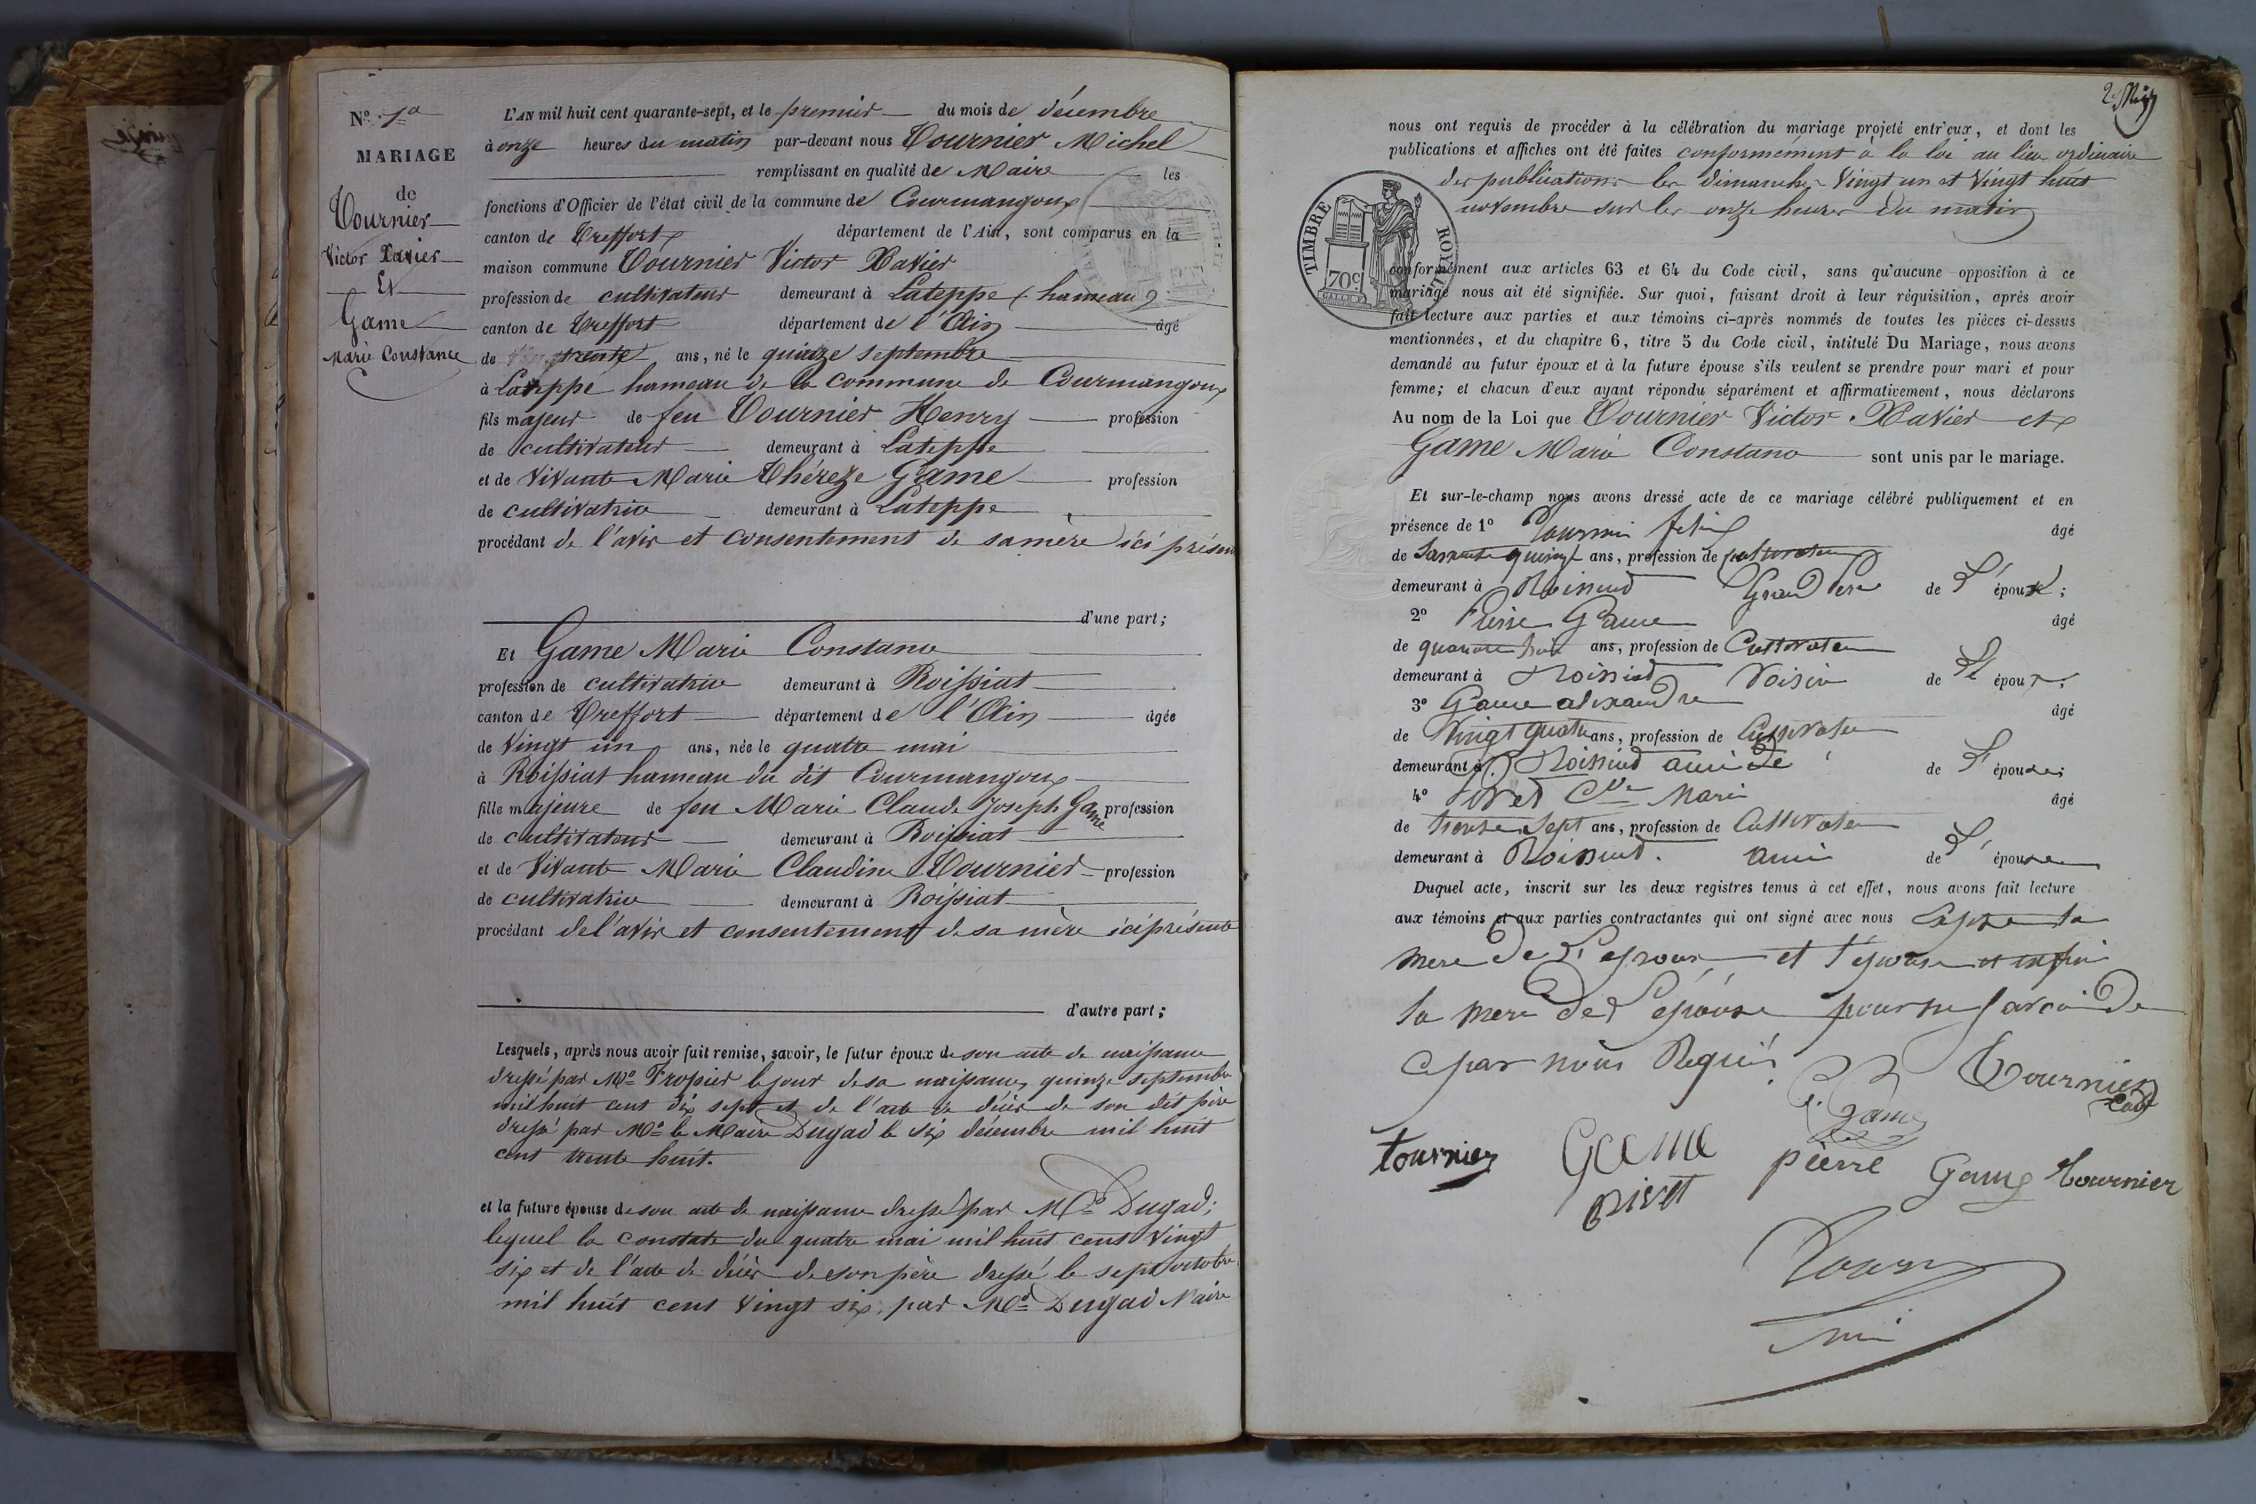 Nº 1
MARIAGE
de
Tournier
Victor Xavier
Et
Game
Marie Constance
L'AN mil huit cent quarante-sept, et le premier du mois de décembre
à onze heures du matin par-devant nous Tournier Michel
remplissant en qualité de Maire les
fonctions d'Officier de l'état civil de la commune de Courmangoux
canton de Treffort département de l'Ain, sont comparus en la
maison commune Tournier Victor Xavier
profession de cultivateur demeurant à Lateppe (hameau)
canton de Treffort département de l'Ain âgé
de trente ans, né le quinze septembre
à Lateppe hameau de la commune de Courmangoux
fils majeur de feu Tournier Henry profession
de cultivateur demeurant à Lateppe
et de vivante Marie Thérèze Game profession
de cultivatrice demeurant à Lateppe
procédant de l'avis et consentement de sa mère ici présente
d'une part;
Et Game Marie Constance
profession de cultivatrice demeurant à Roissiat
canton de Treffort département de l'Ain âgée
de vingt un ans, née le quatre mai
à Roissiat hameau du dit Courmangoux
fille majeure de feu Marie Claude Joseph Game profession
de cultivateur demeurant à Roissiat
et de vivante Marie Claudine Tournier profession
de cultivatrice demeurant à Roissiat
procédant de l'avis et consentement de sa mère ici présente
d'autre part;
Lesquels, après nous avoir fait remise, savoir, le futur époux de son acte de naissance
dressé par Mr Tropier le jour de sa naissance, quinze septembre
mil huit cent dix sept et de l'acte de décès de son dit père
dressé par Mr le Maire Dugad le six décembre mil huit
cent trente huit.
et la future épouse de son acte de naissance dressé par Mr Dugad;
lequel la constate du quatre mai mil huit cent vingt
six et de l'acte de décès de son père dressé le sept octobre
mil huit cent vingt six, par Mr Dugad Maire
nous ont requis de procéder à la célébration du mariage projeté entr'eux, et dont les
publications et affiches ont été faites conformément à la loi au lieu ordinaire
des publications les dimanches vingt un et vingt huit
novembre sur les onze heures du matin
TIMBRE ROYAL
70c
conformément aux articles 63 et 64 du Code civil, sans qu'aucune opposition à ce
mariage nous ait été signifiée. Sur quoi, faisant droit à leur réquisition, après avoir
fait lecture aux parties et aux témoins ci-après nommés de toutes les pièces ci-dessus
mentionnées, et du chapitre 6, titre 5 du Code civil, intitulé Du Mariage, nous avons
demandé au futur époux et à la future épouse s'ils veulent se prendre pour mari et pour
femme; et chacun d'eux ayant répondu séparément et affirmativement, nous déclarons
Au nom de la Loi que Tournier Victor Xavier et
Game Marie Constance sont unis par le mariage.
Et sur-le-champ nous avons dressé acte de ce mariage célébré publiquement et en
présence de 1º âgé
de ans, profession de cultivateur
demeurant à Roissiat Grand Père de l'époux;
2º Pierre Game âgé
de ans, profession de Cultivateur
demeurant à Roissiat Voisin de l'époux;
3º Game alexandre âgé
de Vingt quatre ans, profession de Cultivateur
demeurant à Roissiat ami de de l'épouse;
4º Marie âgé
de trente sept ans, profession de Cultivateur
demeurant à Roissiat ami de l'épouse
Duquel acte, inscrit sur les deux registres tenus à cet effet, nous avons fait lecture
aux témoins et aux parties contractantes qui ont signé avec nous la
mere de l'epoux et l'épouse et
la mere de l'epouse pour ne savoir de
par nous Requis
Tournier
P. Game
tournier Game pierre Game Tournier